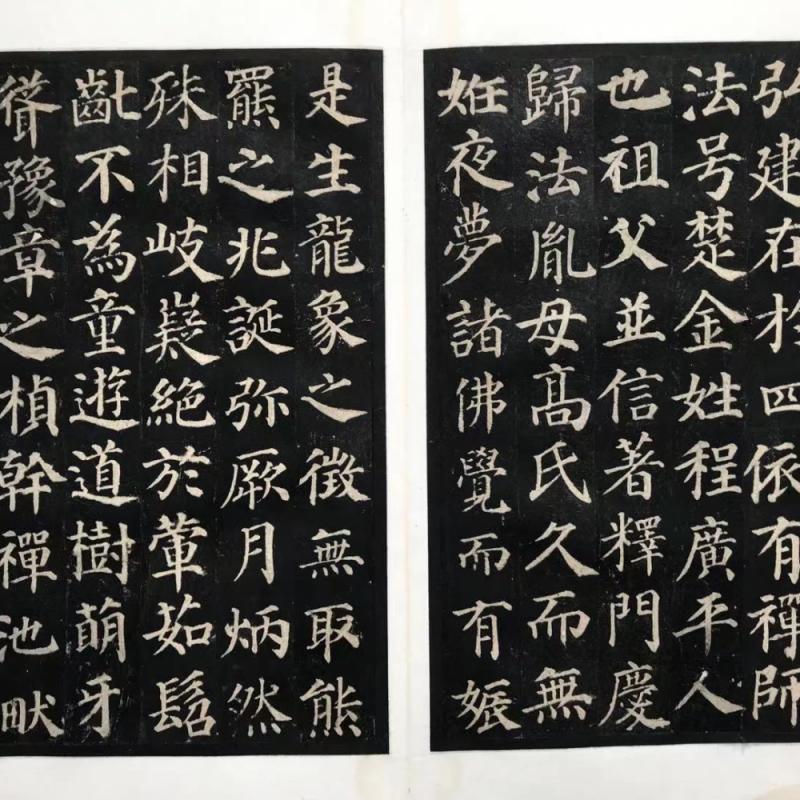 弘建在扵四依有禪師
法号楚金姓程廣平人
也祖父並信著釋門慶
歸法胤母髙氏久而無
姙夜夢諸佛覺而有娠
是生龍象之徵無取熊
羆之兆誕弥厥月炳然
殊相岐嶷絕於葷茹髫
齔不為童遊道樹萌牙
聳豫章之楨幹禪池畎